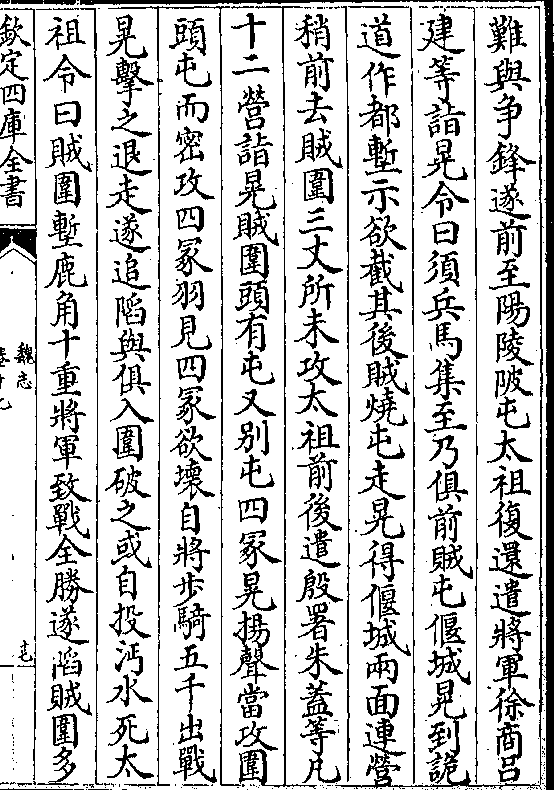 難與争鋒遂前至陽陵陂屯太祖復還遣將軍徐商吕
建等詣晃令曰須兵馬集至乃俱前賊屯偃城晃到詭
道作都塹示欲截其後賊燒屯走晃得偃城兩面連營
稍前去賊圍三丈所未攻太祖前後遣殷署朱蓋等凡
十二營詣晃賊圍頭有屯又别屯四冢晃揚聲當攻圍
頭屯而密攻四冢羽見四冢欲壊自將步騎五千出戰
晃擊之退走遂追陷與俱入圍破之或自投沔水死太
祖令曰賊圍塹鹿角十重將軍致戰全勝遂陷賊圍多
欽定四庫全書
魏志